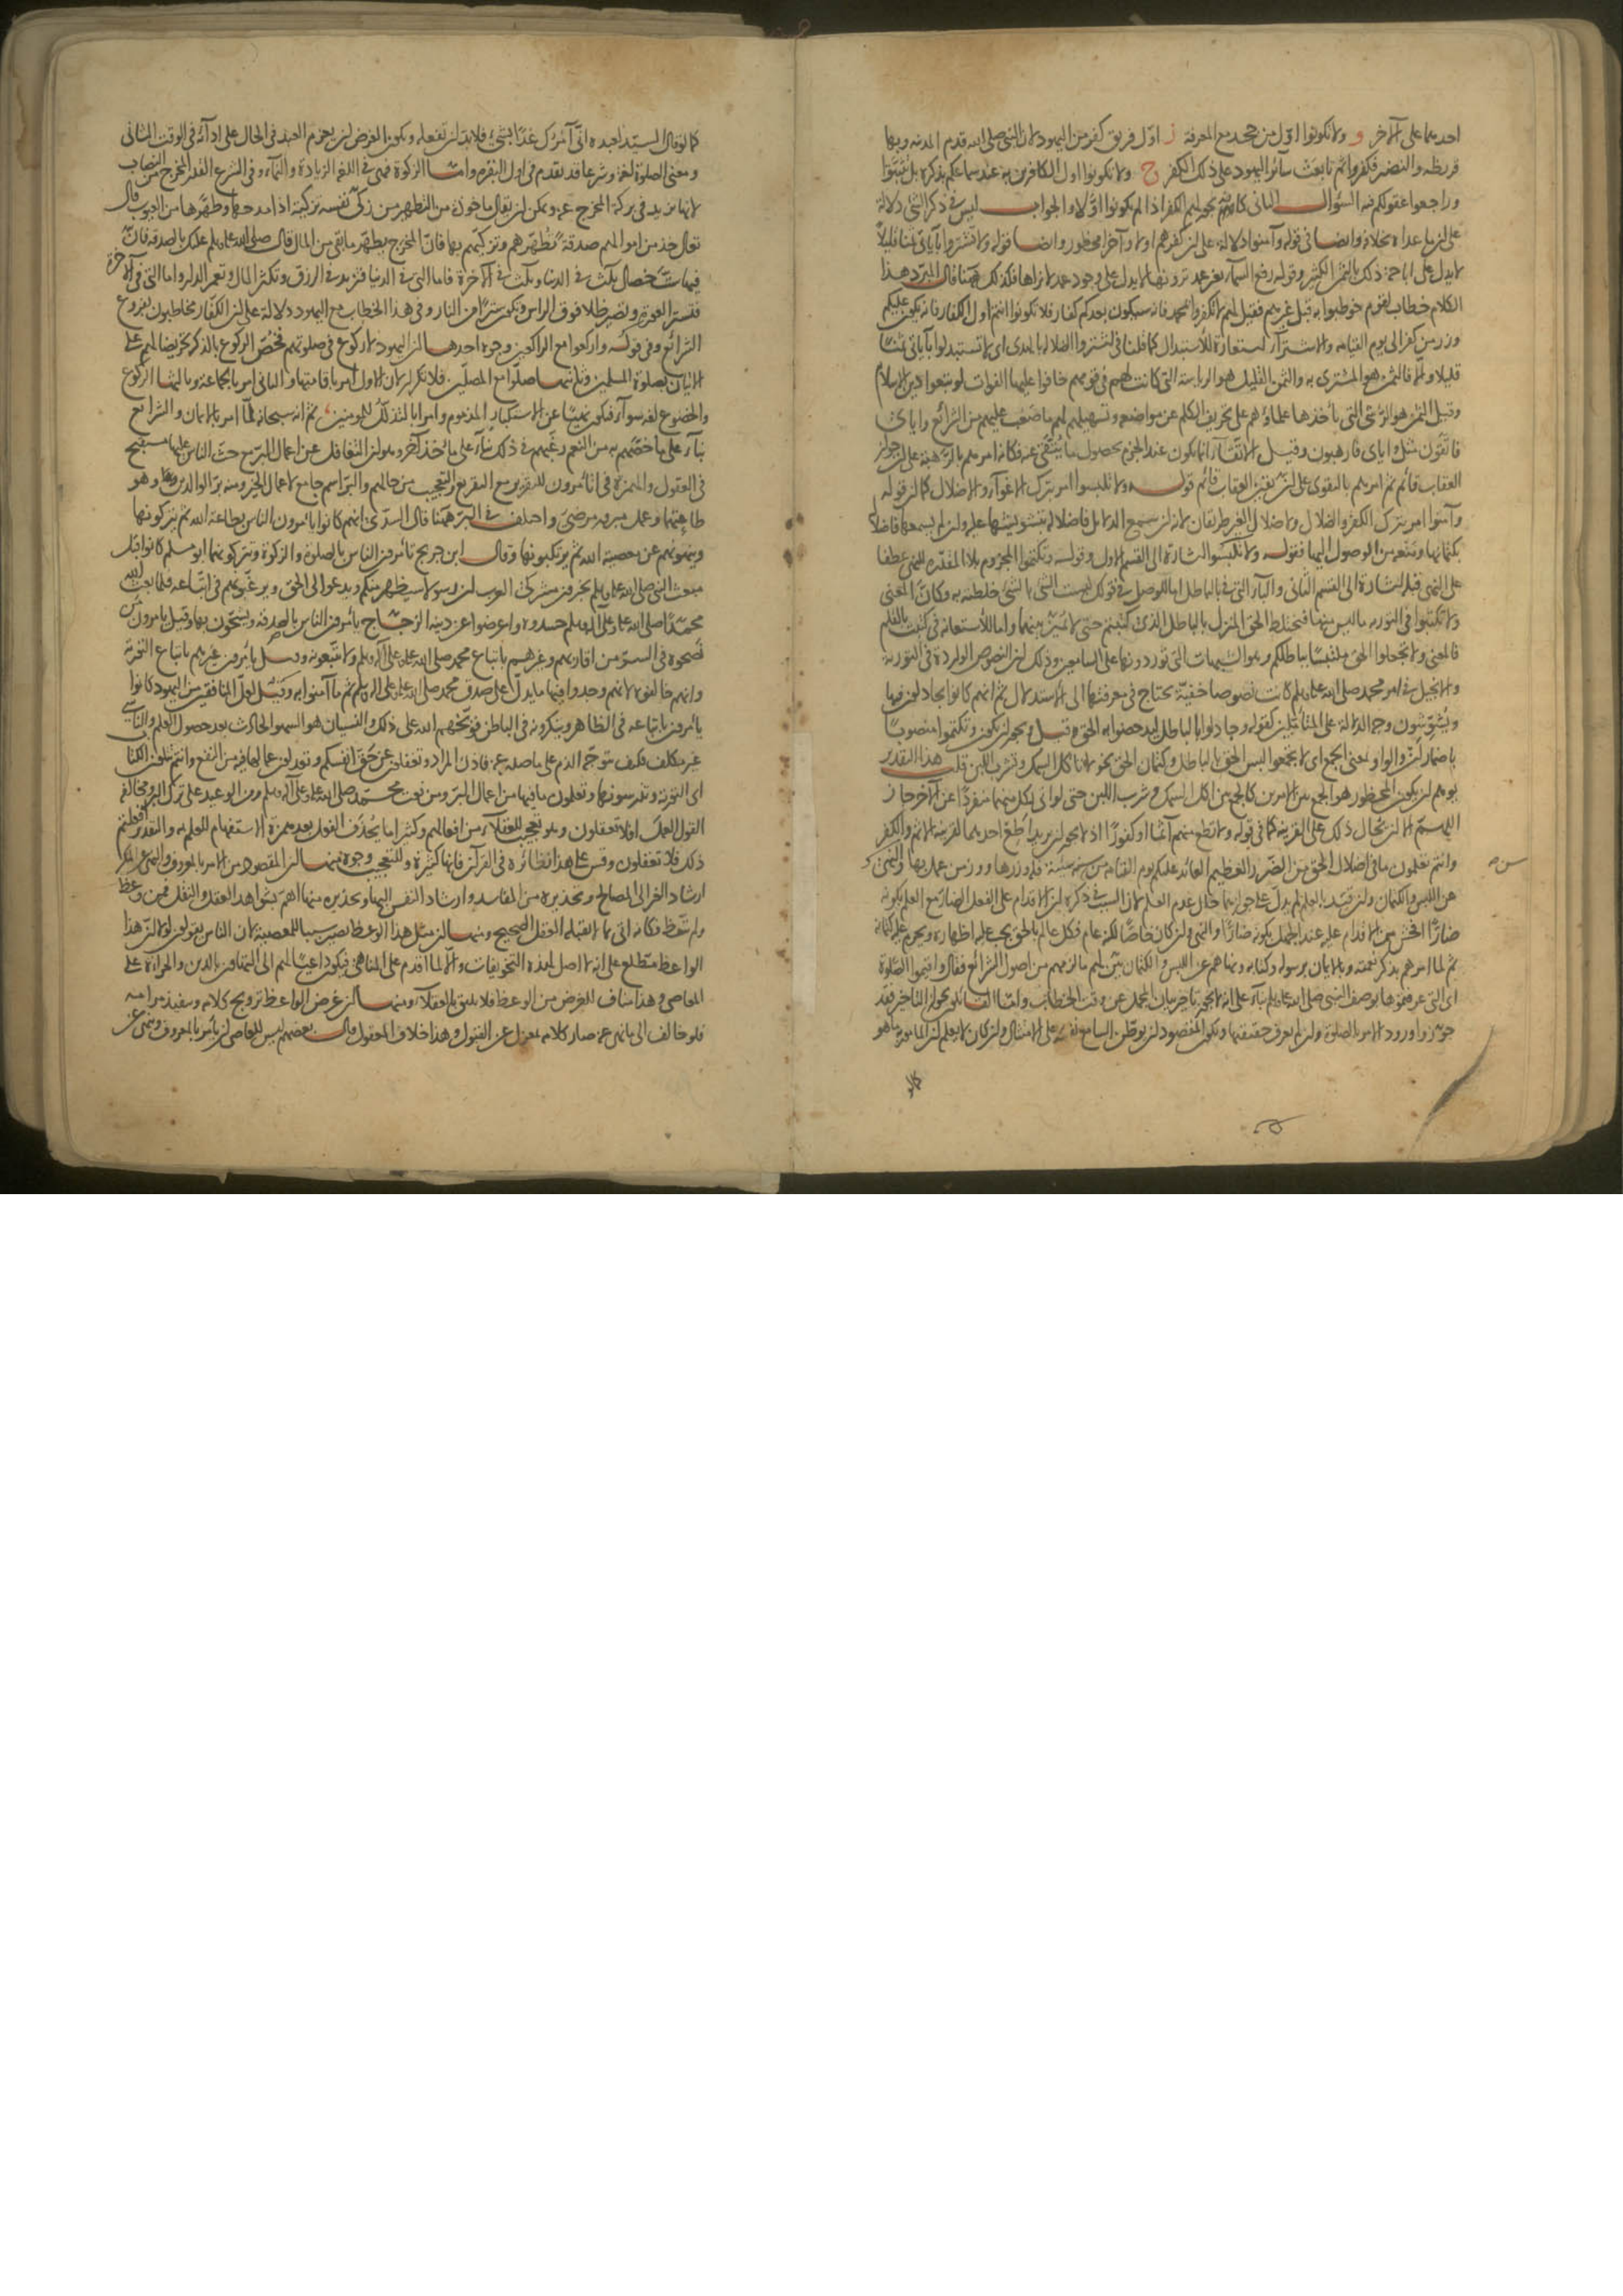 احدهما على الآخر و ولا تكونوا اول من جحد مع المعرفة ز اول فريق كفر من اليهود لان النبي صلى الله قدم المدينة وبها
قريظة والنضير فكفروا ثم تابعت سائر اليهود على ذلك الكفر ح ولا تكونوا اول الكافرين به عند سماعكم بذكره بل تثبتوا
وراجعوا عقولكم فيه السؤال الثاني كانه يجوز لهم الكفر اذا لم يكونوا اولا والجواب ليس في ذكر الشي دلالة
على ان ما عداه بخلافه وايضا في قوله وآمنوا دلالة على ان كفرهم اولا وآخرا محظور وايضا قوله ولا تشتروا بآياتي ثمنا قليلا
لا يدل على اباحة ذلك بالثمن الكثير وقوله رفع السماء بغير عمد ترونها لا يدل على وجود عمد لا نراها فكذلك ههنا قال المبرد هذا
الكلام خطاب لقوم خوطبوا به قبل غيرهم فقيل لهم لا تكفروا بمحمد فانه سيكون بعدكم كفار فلا تكونوا انتم اول الكفار فانه يكون عليكم
وزر من كفر الى يوم القيامة والاشتراء استعارة للاستبدال كما قلنا في اشتروا الضلالة بالهدى اي لا تستبدلوا بآياتي ثمنا
قليلا والا فالثمن هو المشترى به والثمن القليل هو الرياسة التي كانت لهم في قومهم خافوا عليها الفوات لو تبعوا دين الاسلام
وقيل الثمن هو الرشى التي يأخذها علماؤهم على تحريف الكلم عن مواضعه وتسهيلهم لهم ما صعب عليهم من الشرائع واياي
فاتقون مثل واياي فارهبون وقيل الاتقاء انما يكون عند الجزم بحصول ما يتقى عنه فكانه امرهم بالرهبة على ان جواز
العقاب قائم ثم امرهم بالتقوى على ان يقين العقاب قائم قوله ولا تلبسوا امر بترك الاغواء والاضلال كما ان قوله
وآمنوا امر بترك الكفر والضلال ولاضلال الغير طريقان لانه ان سمع الدلايل فاضلاله بتشويشها عليه وان لم يسمعها فاضلاله
بكتمانها ومنعه من الوصول اليها فقوله ولا تلبسوا اشارة الى القسم الاول وقوله وتكتموا المجزوم بلا المقدرة للنهي عطفا
على النهي قبله اشارة الى القسم الثاني والباء التي في بالباطل اما للوصل في قولك لبست الشي بالشي خلطته به وكان المعنى
ولا تكتبوا في التورية ما ليس منها فيختلط الحق المنزل بالباطل الذي كتبتم حتى لا يميز بينهما واما للاستعانة في كتبت بالقلم
فالمعنى ولا تجعلوا الحق ملتبسا بباطلكم وهو الشبهات التي توردونها على السامعين وذلك ان النصوص الواردة في التورية
والانجيل في امر محمد صلى الله عليه وسلم كانت نصوصا خفية يحتاج في معرفتها الى الاستدلال ثم انهم كانوا يجادلون فيها
ويشوشون وجه الدلالة على المتأملين كقوله وجادلوا بالباطل ليدحضوا به الحق وقيل ويجوز ان يكون وتكتموا منصوبا
باضمار ان والواو بمعنى الجمع اي لا تجمعوا لبس الحق بالباطل وكتمان الحق نحو لا تاكل السمك وتشرب اللبن قلت هذا التقدير
يوهم ان يكون المحظور هو الجمع بين الامرين كالجمع بين اكل السمك وشرب اللبن حتى لو اتى بكل منهما منفردا عن الآخر جاز
اللهم الا ان يحال ذلك على القرينة كما في قوله ولا تطع منهم آثما او كفورا اذ لا يجوز ان يريد اطع احدهما لقرينة الاثم والكفر
وانتم تعلمون ما في اضلال الحق من الضرر العظيم العائد عليكم يوم القيامة من سن سنة سيئة فله وزرها ووزر من عمل بها والنهي
عن اللبس والكتمان وان قيد بالعلم لم يدل على جوازهما حال عدم العلم لان السبب في ذكره ان الاقدام على الفعل الضار مع العلم بكونه
ضارا افحش من الاقدام عليه عند الجهل بكونه ضارا والنهي وان كان خاصا لكنه عام فكل عالم بالحق يجب عليه اظهاره ويحرم عليه كتمانه
ثم لما امرهم بذكر نعمته وبالايمان برسوله وكتابه ونهاهم عن اللبس والكتمان بين لهم ما لزمهم من اصول الشرائع فقال واقيموا الصلوة
اي التي عرفتموها بوصف النبي صلى الله عليه وسلم بناء على انه لا يجوز تاخير بيان المجمل عن وقت الخطاب واما القائلون بجواز التاخير فقد
جوزوا ورود الامر بالصلوة وان لم يعرف حقيقتها ويكون المقصود ان يوطن السامع نفسه على الامتثال وان كان لا يعلم ان المامور به ما هو
كما لو قال السيد لعبده اني آمرك غدا بشيء فلا بد ان تفعله ويكون الغرض ان يعزم العبد في الحال على ادائه في الوقت الثاني
ومعنى الصلوة لغة وشرعا قد تقدم في اول البقرة واما الزكوة فهي في اللغة الزيادة والنماء وفي الشرع القدر المخرج من النصاب
لانها تزيد في بركة المخرج عنه ويمكن ان يقال ماخوذ من التطهير من زكى نفسه تزكية اذا مدحها وطهرها من العيوب قال
تعالى خذ من اموالهم صدقة تطهرهم وتزكيهم بها فان المخرج يطهر ما بقي من المال قال صلى الله عليه وسلم عليك بالصدقة فان
فيها ست خصال ثلث في الدنيا وثلث في الآخرة فاما التي في الدنيا فتزيد في الرزق وتكثر المال وتعمر الديار واما التي في الآخرة
فتستر العورة وتصير ظلا فوق الراس وتكون سترا من النار وفي هذا الخطاب مع اليهود دلالة على ان الكفار مخاطبون بفروع
الشرائع وفي قوله واركعوا مع الراكعين وجوه احدها ان اليهود لا ركوع في صلوتهم فخص الركوع بالذكر تحريضا لهم على
الاتيان بصلوة المسلمين وثانيها صلوا مع المصلين فلا تكرار لان الاول امر باقامتها والثاني امر بالجماعة وثالثها الركوع
والخضوع لغة سواء فيكون نهيا عن الاستكبار المذموم وامرا بالتذلل للمومنين ثم انه سبحانه لما امر بالايمان والشرائع
بناء على ما خصهم به من النعم رغبهم في ذلك بناء على مأخذ آخر وهو ان التغافل عن اعمال البر مع حث الناس عليها مستقبح
في العقول والهمزة في اتأمرون للتقرير مع التقريع والتعجيب من حالهم والبر اسم جامع لاعمال الخير ومنه بر الوالدين وهو
طاعتهما وعمل مبرور مرضي واختلف في البر ههنا قال السدي انهم كانوا يامرون الناس بطاعة الله ثم يتركونها
وينهونهم عن معصية الله ثم يرتكبونها وقال ابن جريج تأمرون الناس بالصلوة والزكوة وتتركونهما ابو مسلم كانوا قبل
مبعث النبي صلى الله عليه وسلم يخبرون مشركي العرب ان رسولا سيظهر منكم ويدعو الى الحق ويرغبونهم في اتباعه فلما بعث الله
محمدا صلى الله عليه وعلى آله وسلم حسدوه واعرضوا عن دينه الزجاج يأمرون الناس بالصدقة ويشحون بها وقيل يامرون من
نصحوه في السر من اقاربهم وغيرهم باتباع محمد صلى الله عليه وعلى آله وسلم ولا يتبعونه وقيل يأمرون غيرهم باتباع التورية
وانهم خالفوه لانهم وجدوا فيها ما يدل على صدق محمد صلى الله عليه وعلى آله وسلم ثم ما آمنوا به وقيل لعل المنافقين من اليهود كانوا
يأمرون باتباعه في الظاهر وينكرونه في الباطن فوبخهم الله على ذلك والنسيان هو السهو الحادث بعد حصول العلم والناسي
غير مكلف فكيف يتوجه الذم على ما صدر عنه فاذن المراد وتغفلون عن حق انفسكم وتعدلون عما لها فيه من النفع وانتم تتلون الكتاب
اي التورية وتدرسونها وتعلمون ما فيها من اعمال البر ومن نعت محمد صلى الله عليه وعلى آله وسلم ومن الوعيد على ترك البر ومخالفة
القول العمل افلا تعقلون وهو تعجيب للعقلاء من افعالهم وكثيرا ما يحذف الفعل بعد همزة الاستفهام للعلم به والتقدير افعلتم
ذلك فلا تعقلون وقس على هذا نظائره في القرآن فانها كثيرة وللتعجيب وجوه منها ان المقصود من الامر بالمعروف والنهي عن المنكر
ارشاد الغير الى المصالح وتحذيره من المفاسد وارشاد النفس اليها وتحذيره منها اهم بشواهد العقل والنقل فمن وعظ
ولم يتعظ فكانه اتى بما لا يقبله العقل الصحيح ومنها ان مثل هذا الوعظ يصير سببا للمعصية لان الناس يقولون لولا ان هذا
الواعظ مطلع على انه لا اصل لهذه التخويفات والا لما اقدم على المناهي فيكون داعيا لهم الى التهاون بالدين والجراءة على
المعاصي وهذا مناف للغرض من الوعظ فلا يليق بالعقلاء ومنها ان غرض الواعظ ترويج كلامه وتنفيذ مرامه
فلو خالف الى ما نهى عنه صار كلامه بمعزل عن القبول وهذا خلاف المعقول قال بعضهم ليس للعاصي ان يأمر بالمعروف وينهى عن